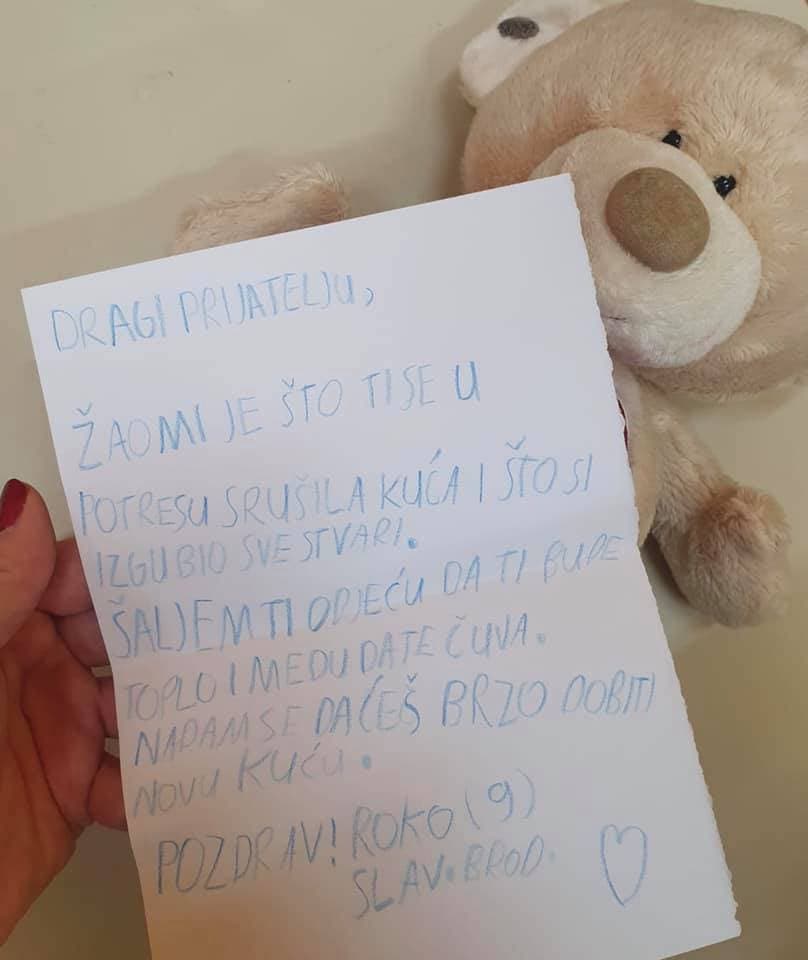 DRAGI PRIJATELJU,
ŽAO MI JE ŠTO TI SE U
POTRESU SRUŠILA KUĆA I ŠTO SI
IZGUBIO SVE STVARI.
ŠALJEM TI ODJEĆU DA TI BUDE
TOPLO I MEDU DA TE ČUVA.
NADAM SE DA ĆEŠ BRZO DOBITI
NOVU KUĆU.
POZDRAV! ROKO (9)
SLAV. BROD.